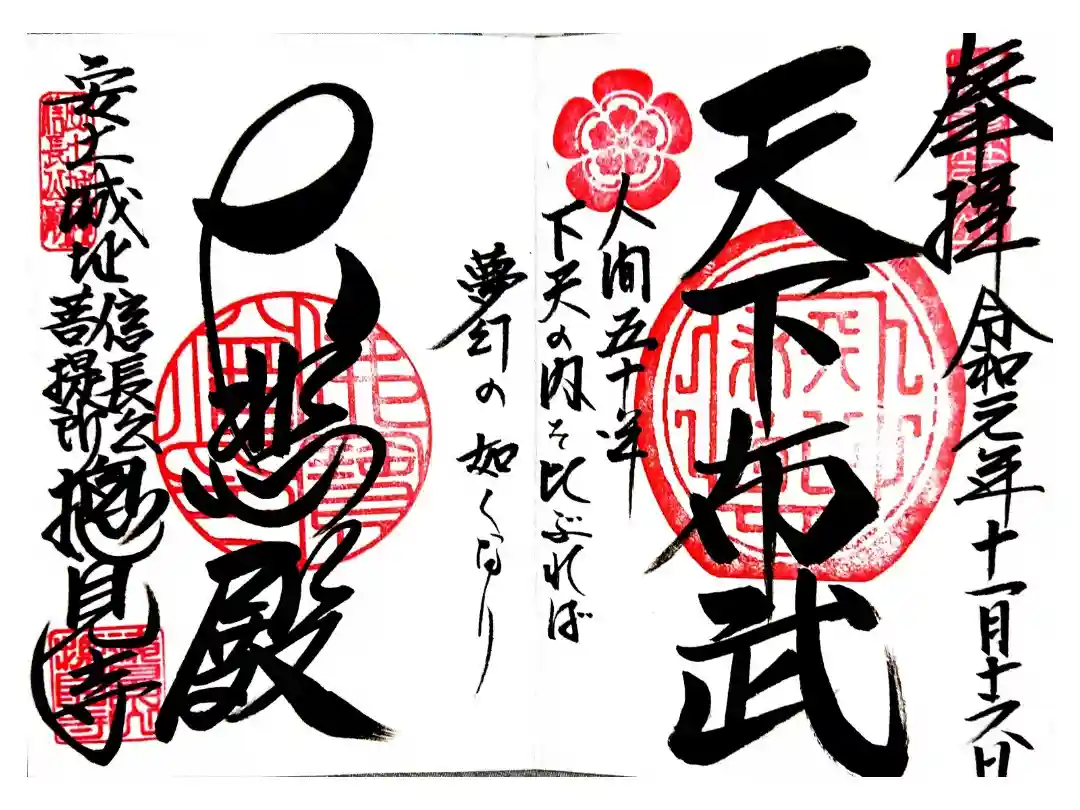 奉拝 令和元年十一月十六日
天下布武
人間五十年
下天の内を比ぶれば
夢幻の如くなり
殿
安土城址
信長公
菩提所
摠見寺